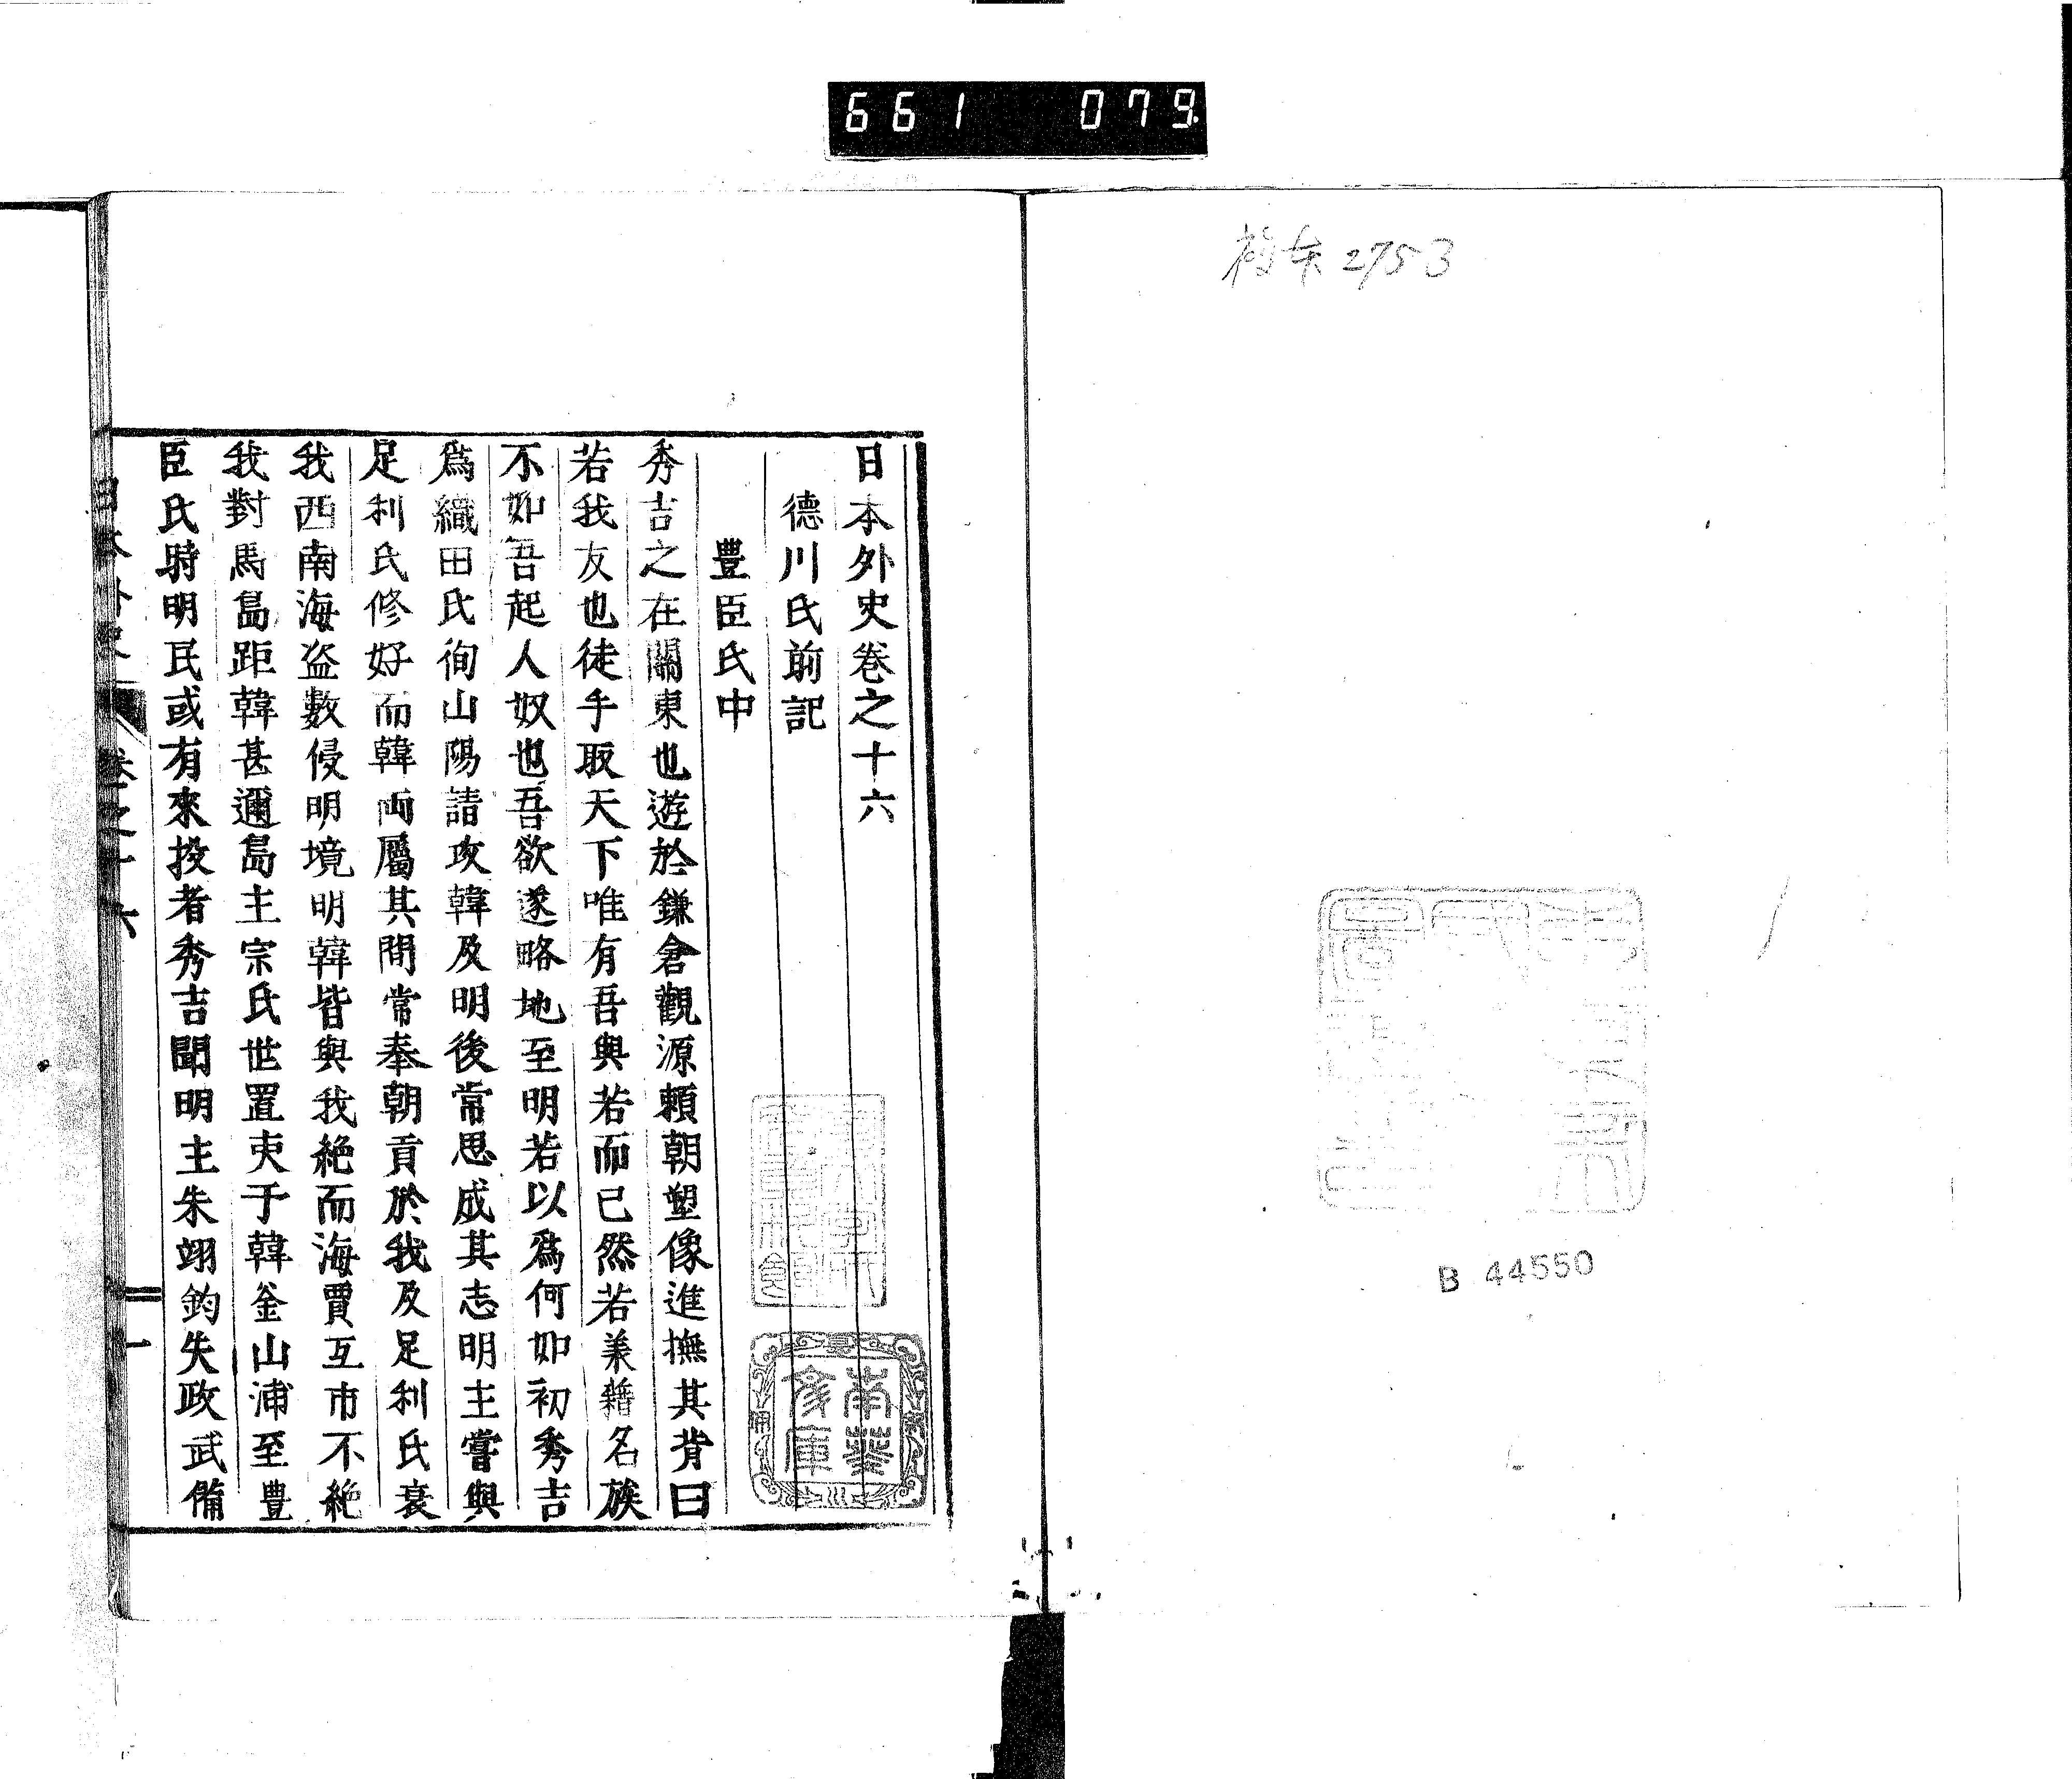 661 079
2753
B 44550
日本外史卷之十六
德川氏前記
豐臣氏中
秀吉之在關東也遊於鎌倉觀源賴朝塑像進撫其背曰
若我友也徒手取天下唯有吾與若而已然若美籍名族
不如吾起人奴也吾欲遂略地至明若以爲何如初秀吉
爲織田氏徇山陽請攻韓及明後常思成其志明主嘗與
足利氏修好而韓兩屬其間常奉朝貢於我及足利氏衰
我西南海盜數侵明境明韓皆與我絶而海賈互市不絶
我對馬島距韓甚邇島主宗氏世置吏于韓釜山浦至豐
臣氏時明民或有來投者秀吉聞明主朱翊鈞失政武備
日本外史 卷之十六 一
南葵文庫